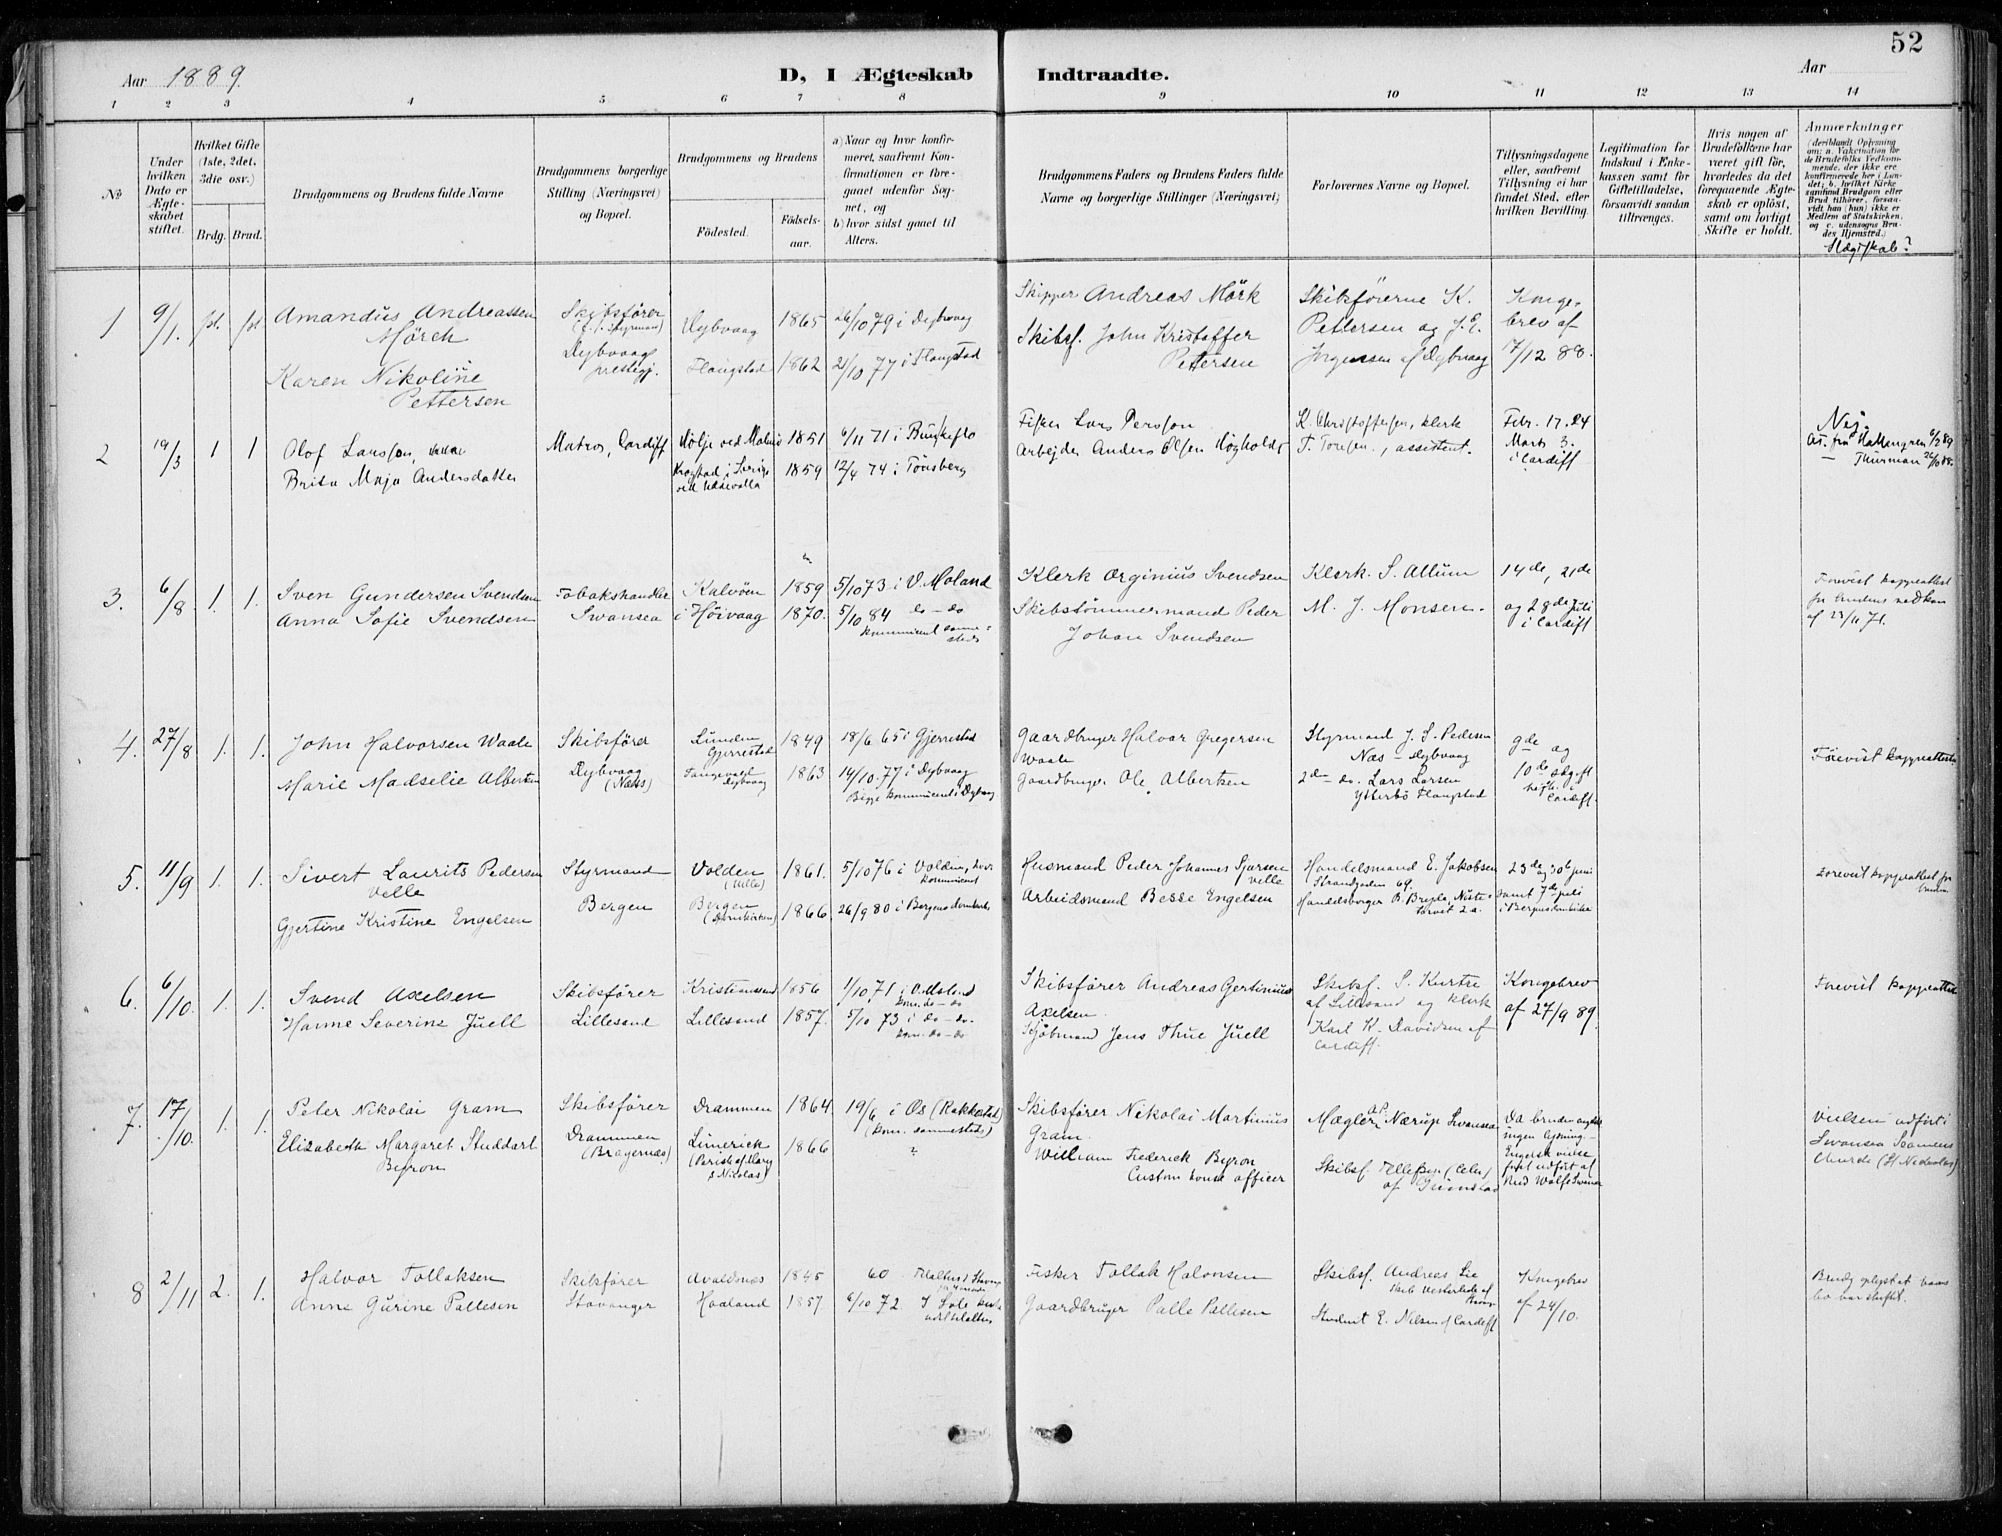 52
Aar 1889.
D, I Ægteskab Indtraadte.
Aar
1 2 3 4 5 6 7 8 9 10 11 12 13 14
No
Under hvilken Dato er Ægteskabet stiftet.
Hvilket Gifte (1ste, 2det, 3die osv.)
Brdg. Brud.
Brudgommens og Brudens fulde Navne
Brudgommens borgerlige Stilling (Næringsvei) og Bopæl.
Brudgommens og Brudens
Fødested.
Fødselsaar.
a) Naar og hvor konfirmeret, saafremt Konfirmationen er foregaaet udenfor Sognet, og
b) hvor sidst gaaet til Alters.
Brudgommens Faders og Brudens Faders fulde Navne og borgerlige Stillinger (Næringsvei)
Forlovernes Navne og Bopæl.
Tillysningsdagene eller, saafremt Tillysning ei har fundet Sted, efter hvilken Bevilling.
Legitimation for Indskud i Enkekassen samt for Giftetilladelse, forsaavidt saadan tiltrænges.
Hvis nogen af Brudefolkene har været gift før, hvorledes da det foregaaende Ægteskab er opløst, samt om lovligt Skifte er holdt.
Anmærkninger (deriblandt Oplysning om: a. Vakcination for de Brudefolks Vedkommende, der ikke ere konfirmerede her i Landet; b. hvilket Kirkesamfund Brudgom eller Brud tilhører, forsaavidt han (hun) ikke er Medlem af Statskirken, og c. udensogns Brudes Hjemsted.)
Slægtskab?
1 9/1. Amandus Andreassen Mörch
Karen Nikoline Pettersen
Skibsfører
Dybvaag prestegj.
Dybvaag 1865 26/10 79 i Dybvaag
Flangstad 1862 21/10 77 i Flangstad
Skipper Andreas Mörk
Skibsf. John Kristoffer Pettersen
Skibsförerne K. Pettersen og J. E. Jörgensen af Dybvaag
Kongebrev af 7/12 88.
2 19/3 1 1 Olof Larsson
Brita Maja Andersdatter
Matros, Cardiff
Hölje ved Malmö 1851 6/11 71 i
Krogstad i Sverige ved Uddevalla 1859 12/4 74 i Tönsberg
Fisker Lars Persson
Arbejder Anders Olsen Högholdt
K. Christoffersen, klerk
T. Tonsen, assistent.
Febr. 17. 24 Marts 3. i Cardiff
Nej.
At. fra Hallangren 6/3 89
— Thurman 26/10 88.
3. 6/8 1. 1. Sven Gundersen Svendsen
Anna Sofie Svendsen
Tobakshandler Swansea
Kalvöen i Höivaag
1859 5/10 73 i V. Moland
1870. 5/10 84 do — do
kommunicert sammesteds
Klerk Orginius Svendsen
Skibstömmermand Peder Johan Svendsen
Klerk. S. Allum
M. J. Monsen.
14de, 21de og 28de Juli i Cardiff
Forevist koppeattest for brudens vedkom af 23/11 71.
4. 27/8 1. 1. John Halvorsen Waale
Marie Madselie Albertsen
Skibsförer Dybvaag (Næs)
Lunden Gjerrestad 1849 18/6 65 i Gjerrestad
Dybvaag 1863 14/10. 77 i Dybvaag
Begge kommunicert i Dybvaag
Gaardbruger Halvor Gregersen Waale
Gaardbruger Ole Albertsen
Styrmand J. S. Pedersen Næs — Dybvaag
2de do. Lars Larsen Ytterbö Flangstad
9de og 10de Cardiff.
Forevist koppeattester
5. 11/9 1. 1. Sivert Laurits Pedersen Velle
Gjertine Kristine Engelsen
Styrmand Bergen
Volden (Velle) 1861. 5/10 76 i Volden, hvor kommunicert
Bergen (Domkirken) 1866. 26/9 80 i Bergens domkirke
Husmand Peder Johannes Sjursen Velle
Arbeidsmand Besse Engelsen
Handelsmand E. Jakobsen Strandgaden 69.
Handelsborger B. Brejle, Nöstetorvet 2a.
23de og 30te juni samt 7de juli i Bergens domkirke
Forevist koppeattest for
6. 6/10. 1. 1. Svend Axelsen
Hanne Severine Juell
Skibsförer Lillesand
Kristianssand 1856 1/10 71 i V. Moland
kom. do — do
Lillesand 1857. 5/10 73 i do — do.
kom. do — do
Skibsförer Andreas Gertinius Axelsen.
Sjöbmand Jens Thue Juell
Skibsf. S. Kurtre af Lillesand og klerk Karl K. Davidsen af Cardiff.
Kongebrev af 27/9 89.
Forevist koppeattest
7. 17/10. 1. 1. Peter Nikolai Gram
Elizabeth Margaret Studdart Byron
Skibsförer Drammen (Bragernæs)
Drammen 1864. 19/6 i Os (Rakkestad) (kom. sammesteds)
Limerick (Parish of Mary & Nikolas) 1866 ?
Skibsförer Nikolai Martinius Gram.
William Frederick Byron Custom house officer
Mægler A. P. Nærup Swansea
Skibsf. Ellefsen (Celer) af Grimstad
Da bruden engelsk ingen lysning. Engelsk vielse först udfört af Rev Wolfe Swansea
Vielsen udfört i Swansea Seamens Church (St Nicholas)
8 2/11 2. 1. Halvor Tollaksen
Anne Gurine Pallesen
Skibsförer Stavanger
Avaldsnæs 1845 60
Haaland 1857. 6/10 72 I Sole kirke
Fisker Tollak Halvorsen
Gaardbruger Palle Pallesen
Skibsf. Andreas Lie Skib Vesterlide af Stavanger
Student E. Nilsen af Cardiff
Kongebrev af 24/10.
Brudg oplyst at hans bo var skiftet.